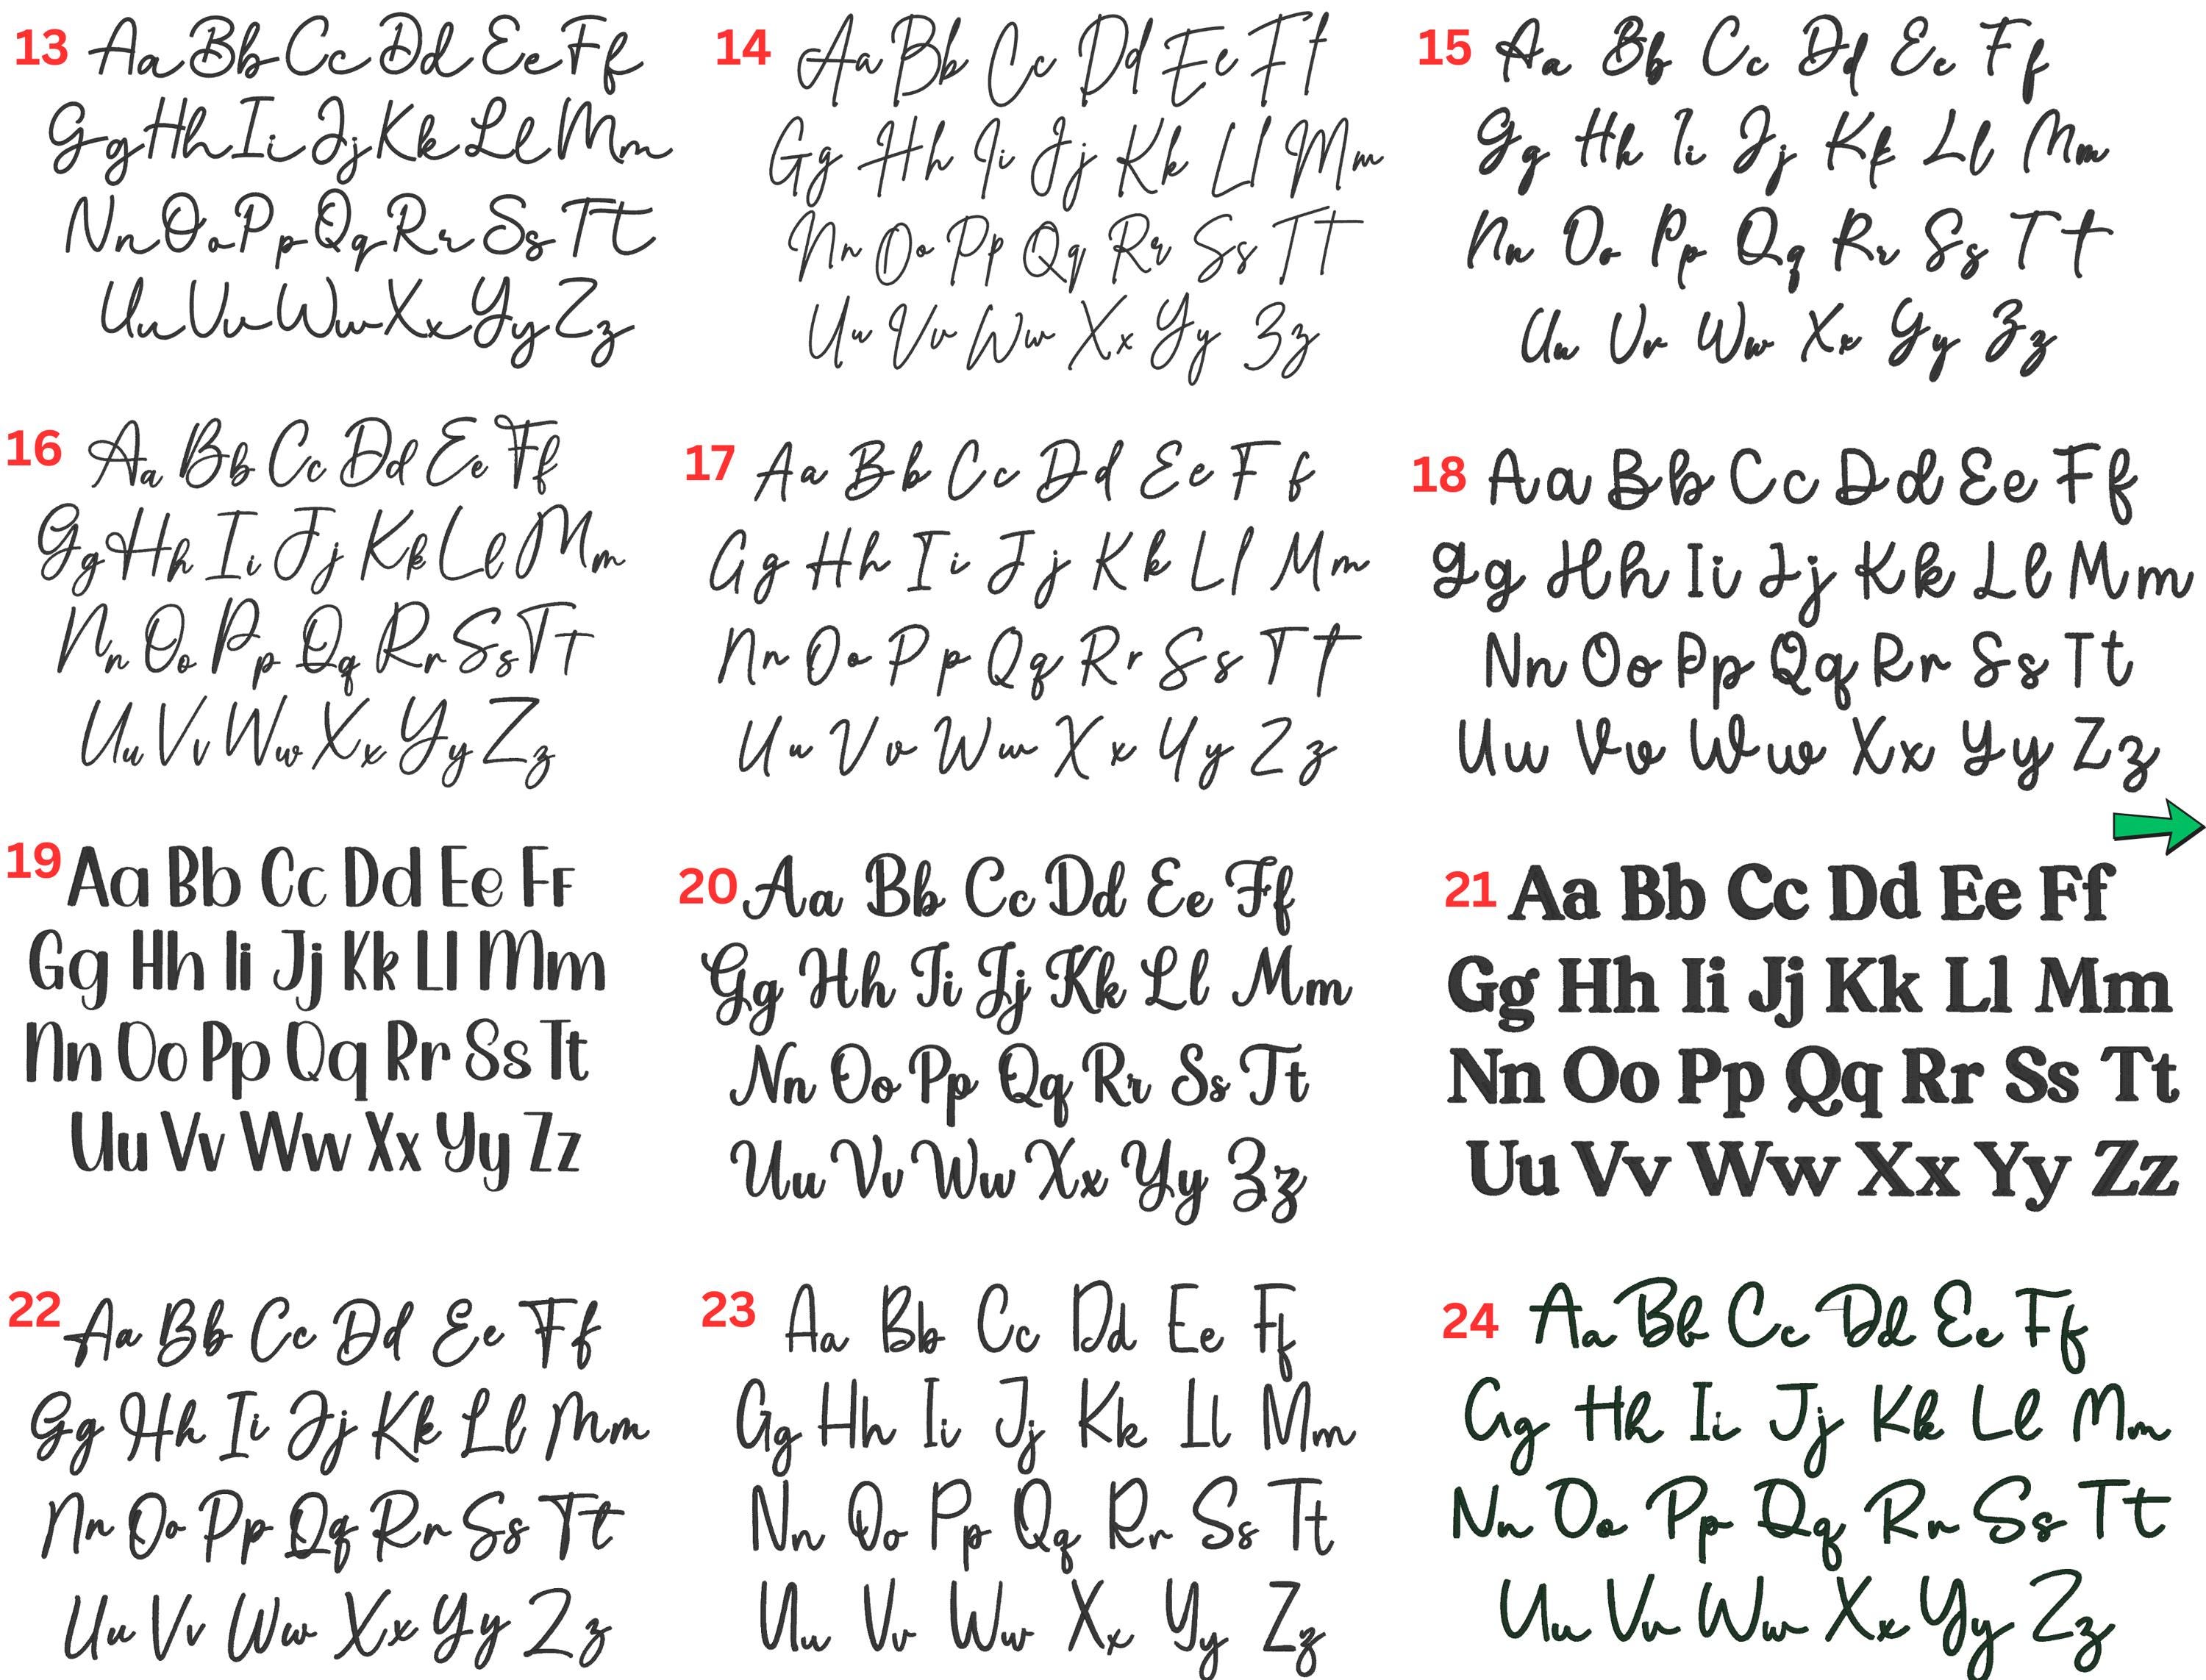 13 Aa Bb Cc Dd Ee Ff
Gg Hh Ii Jj Kk Ll Mm
Nn Oo Pp Qq Rr Ss Tt
Uu Vv Ww Xx Yy Zz
14 Aa Bb Cc Dd Ee Ff
Gg Hh Ii Jj Kk Ll Mm
Nn Oo Pp Qq Rr Ss Tt
Uu Vv Ww Xx Yy Zz
15 Aa Bb Cc Dd Ee Ff
Gg Hh Ii Jj Kk Ll Mm
Nn Oo Pp Qq Rr Ss Tt
Uu Vv Ww Xx Yy Zz
16 Aa Bb Cc Dd Ee Ff
Gg Hh Ii Jj Kk Ll Mm
Nn Oo Pp Qq Rr Ss Tt
Uu Vv Ww Xx Yy Zz
17 Aa Bb Cc Dd Ee Ff
Gg Hh Ii Jj Kk Ll Mm
Nn Oo Pp Qq Rr Ss Tt
Uu Vv Ww Xx Yy Zz
18 Aa Bb Cc Dd Ee Ff
Gg Hh Ii Jj Kk Ll Mm
Nn Oo Pp Qq Rr Ss Tt
Uu Vv Ww Xx Yy Zz
19 Aa Bb Cc Dd Ee Ff
Gg Hh Ii Jj Kk Ll Mm
Nn Oo Pp Qq Rr Ss Tt
Uu Vv Ww Xx Yy Zz
20 Aa Bb Cc Dd Ee Ff
Gg Hh Ii Jj Kk Ll Mm
Nn Oo Pp Qq Rr Ss Tt
Uu Vv Ww Xx Yy Zz
21 Aa Bb Cc Dd Ee Ff
Gg Hh Ii Jj Kk Ll Mm
Nn Oo Pp Qq Rr Ss Tt
Uu Vv Ww Xx Yy Zz
22 Aa Bb Cc Dd Ee Ff
Gg Hh Ii Jj Kk Ll Mm
Nn Oo Pp Qq Rr Ss Tt
Uu Vv Ww Xx Yy Zz
23 Aa Bb Cc Dd Ee Ff
Gg Hh Ii Jj Kk Ll Mm
Nn Oo Pp Qq Rr Ss Tt
Uu Vv Ww Xx Yy Zz
24 Aa Bb Cc Dd Ee Ff
Gg Hh Ii Jj Kk Ll Mm
Nn Oo Pp Qq Rr Ss Tt
Uu Vv Ww Xx Yy Zz